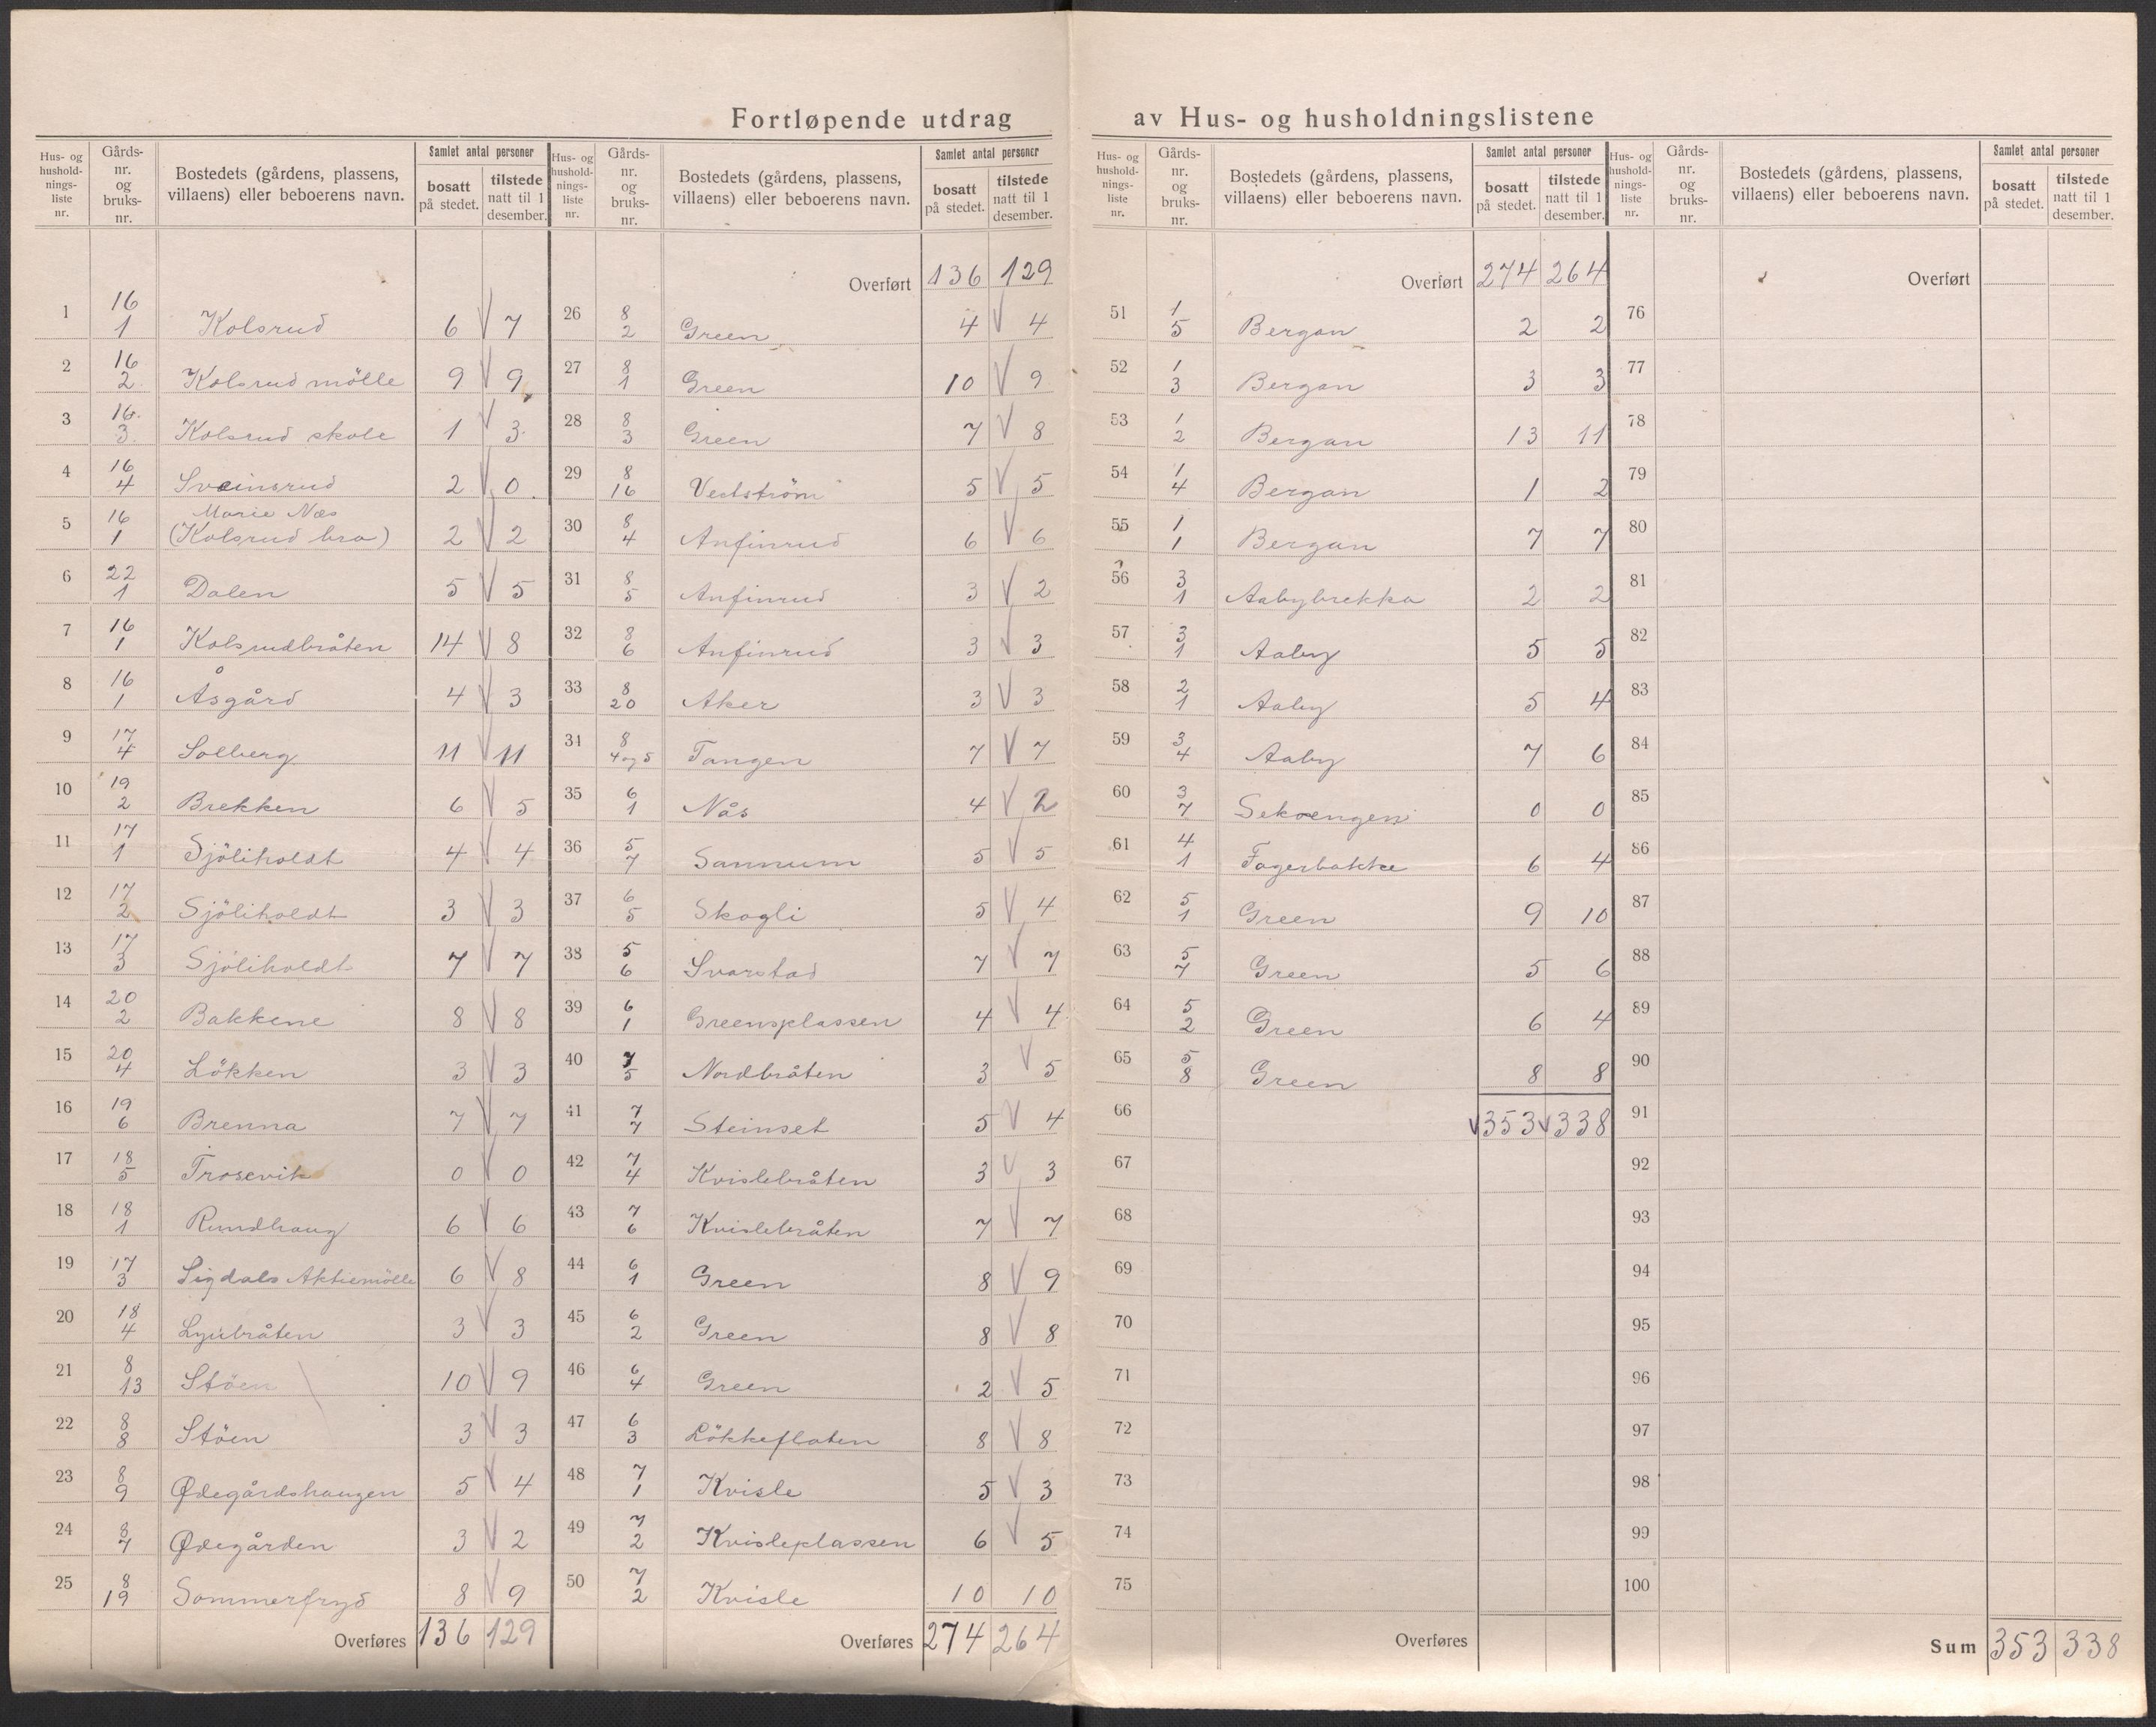 Fortløpende utdrag av Hus- og husholdningslistene
Hus- og husholdningsliste nr. | Gårdsnr. og bruksnr. | Bostedets (gårdens, plassens, villaens) eller beboerens navn. | Samlet antal personer bosatt på stedet. | tilstede natt til 1 desember.
1 16/1 Kolsrud 6 V 7
2 16/2 Kolsrud mölle 9 V 9
3 16/3 Kolsrud skole 1 V 3
4 16/4 Sveinsrud 2 V 0
5 16/1 Marie Næs (Kolsrud bro) 2 V 2
6 22/1 Dalen 5 V 5
7 16/1 Kolsrudbråten 14 V 8
8 16/1 Åsgård 4 V 3
9 17/4 Solberg 11 V 11
10 19/2 Brekken 6 V 5
11 17/1 Sjöliholdt 4 V 4
12 17/2 Sjöliholdt 3 V 3
13 17/3 Sjöliholdt 7 V 7
14 20/2 Bakkene 8 V 8
15 20/4 Lökken 3 V 3
16 19/6 Brenna 7 V 7
17 18/5 Trosevik 0 V 0
18 18/1 Rundhaug 6 V 6
19 17/3 Sigdals Aktiemölle 6 V 8
20 18/4 Lyubråten 3 V 3
21 8/13 Stöen 10 V 9
22 8/8 Stöen 3 V 3
23 8/9 Ødegårdshaugen 5 V 4
24 8/7 Ødegården 3 V 2
25 8/19 Sommerfryd 8 V 9
Overføres 136 129
Hus- og husholdningsliste nr. | Gårdsnr. og bruksnr. | Bostedets (gårdens, plassens, villaens) eller beboerens navn. | Samlet antal personer bosatt på stedet. | tilstede natt til 1 desember.
Overført 136 129
26 8/2 Green 4 V 4
27 8/1 Green 10 V 9
28 8/3 Green 7 V 8
29 8/16 Vestström 5 V 5
30 8/4 Anfinrud 6 V 6
31 8/5 Anfinrud 3 V 2
32 8/6 Anfinrud 3 V 3
33 8/20 Aker 3 V 3
34 8/4 og 5 Tangen 7 V 7
35 6/1 Nås 4 V 2
36 5/7 Sannum 5 V 5
37 6/5 Skogli 5 V 4
38 5/6 Svarstad 7 V 7
39 6/1 Greensplassen 4 V 4
40 7/5 Nordbråten 3 V 5
41 7/7 Steinset 5 V 4
42 7/4 Kvislebråten 3 V 3
43 7/6 Kvislebråten 7 V 7
44 6/1 Green 8 V 9
45 6/2 Green 8 V 8
46 6/4 Green 2 V 5
47 6/3 Lökkeflaten 8 V 8
48 7/1 Kvisle 5 V 3
49 7/2 Kvisleplassen 6 V 5
50 7/2 Kvisle 10 10
Overføres 274 264
Hus- og husholdningsliste nr. | Gårdsnr. og bruksnr. | Bostedets (gårdens, plassens, villaens) eller beboerens navn. | Samlet antal personer bosatt på stedet. | tilstede natt til 1 desember.
Overført 274 264
51 1/5 Bergan 2 2
52 1/3 Bergan 3 3
53 1/2 Bergan 13 11
54 1/4 Bergan 1 2
55 1/1 Bergan 7 7
56 3/1 Aabybrekka 2 2
57 3/1 Aaby 5 5
58 2/1 Aaby 5 4
59 3/4 Aaby 7 6
60 3/7 Sekoengen 0 0
61 4/1 Fagerbakke 6 4
62 5/1 Green 9 10
63 5/7 Green 5 6
64 5/2 Green 6 4
65 5/8 Green 8 8
66 V 353 V 338
67
68
69
70
71
72
73
74
75
Overføres
Hus- og husholdningsliste nr. | Gårdsnr. og bruksnr. | Bostedets (gårdens, plassens, villaens) eller beboerens navn. | Samlet antal personer bosatt på stedet. | tilstede natt til 1 desember.
Overført
76
77
78
79
80
81
82
83
84
85
86
87
88
89
90
91
92
93
94
95
96
97
98
99
100
Sum 353 338